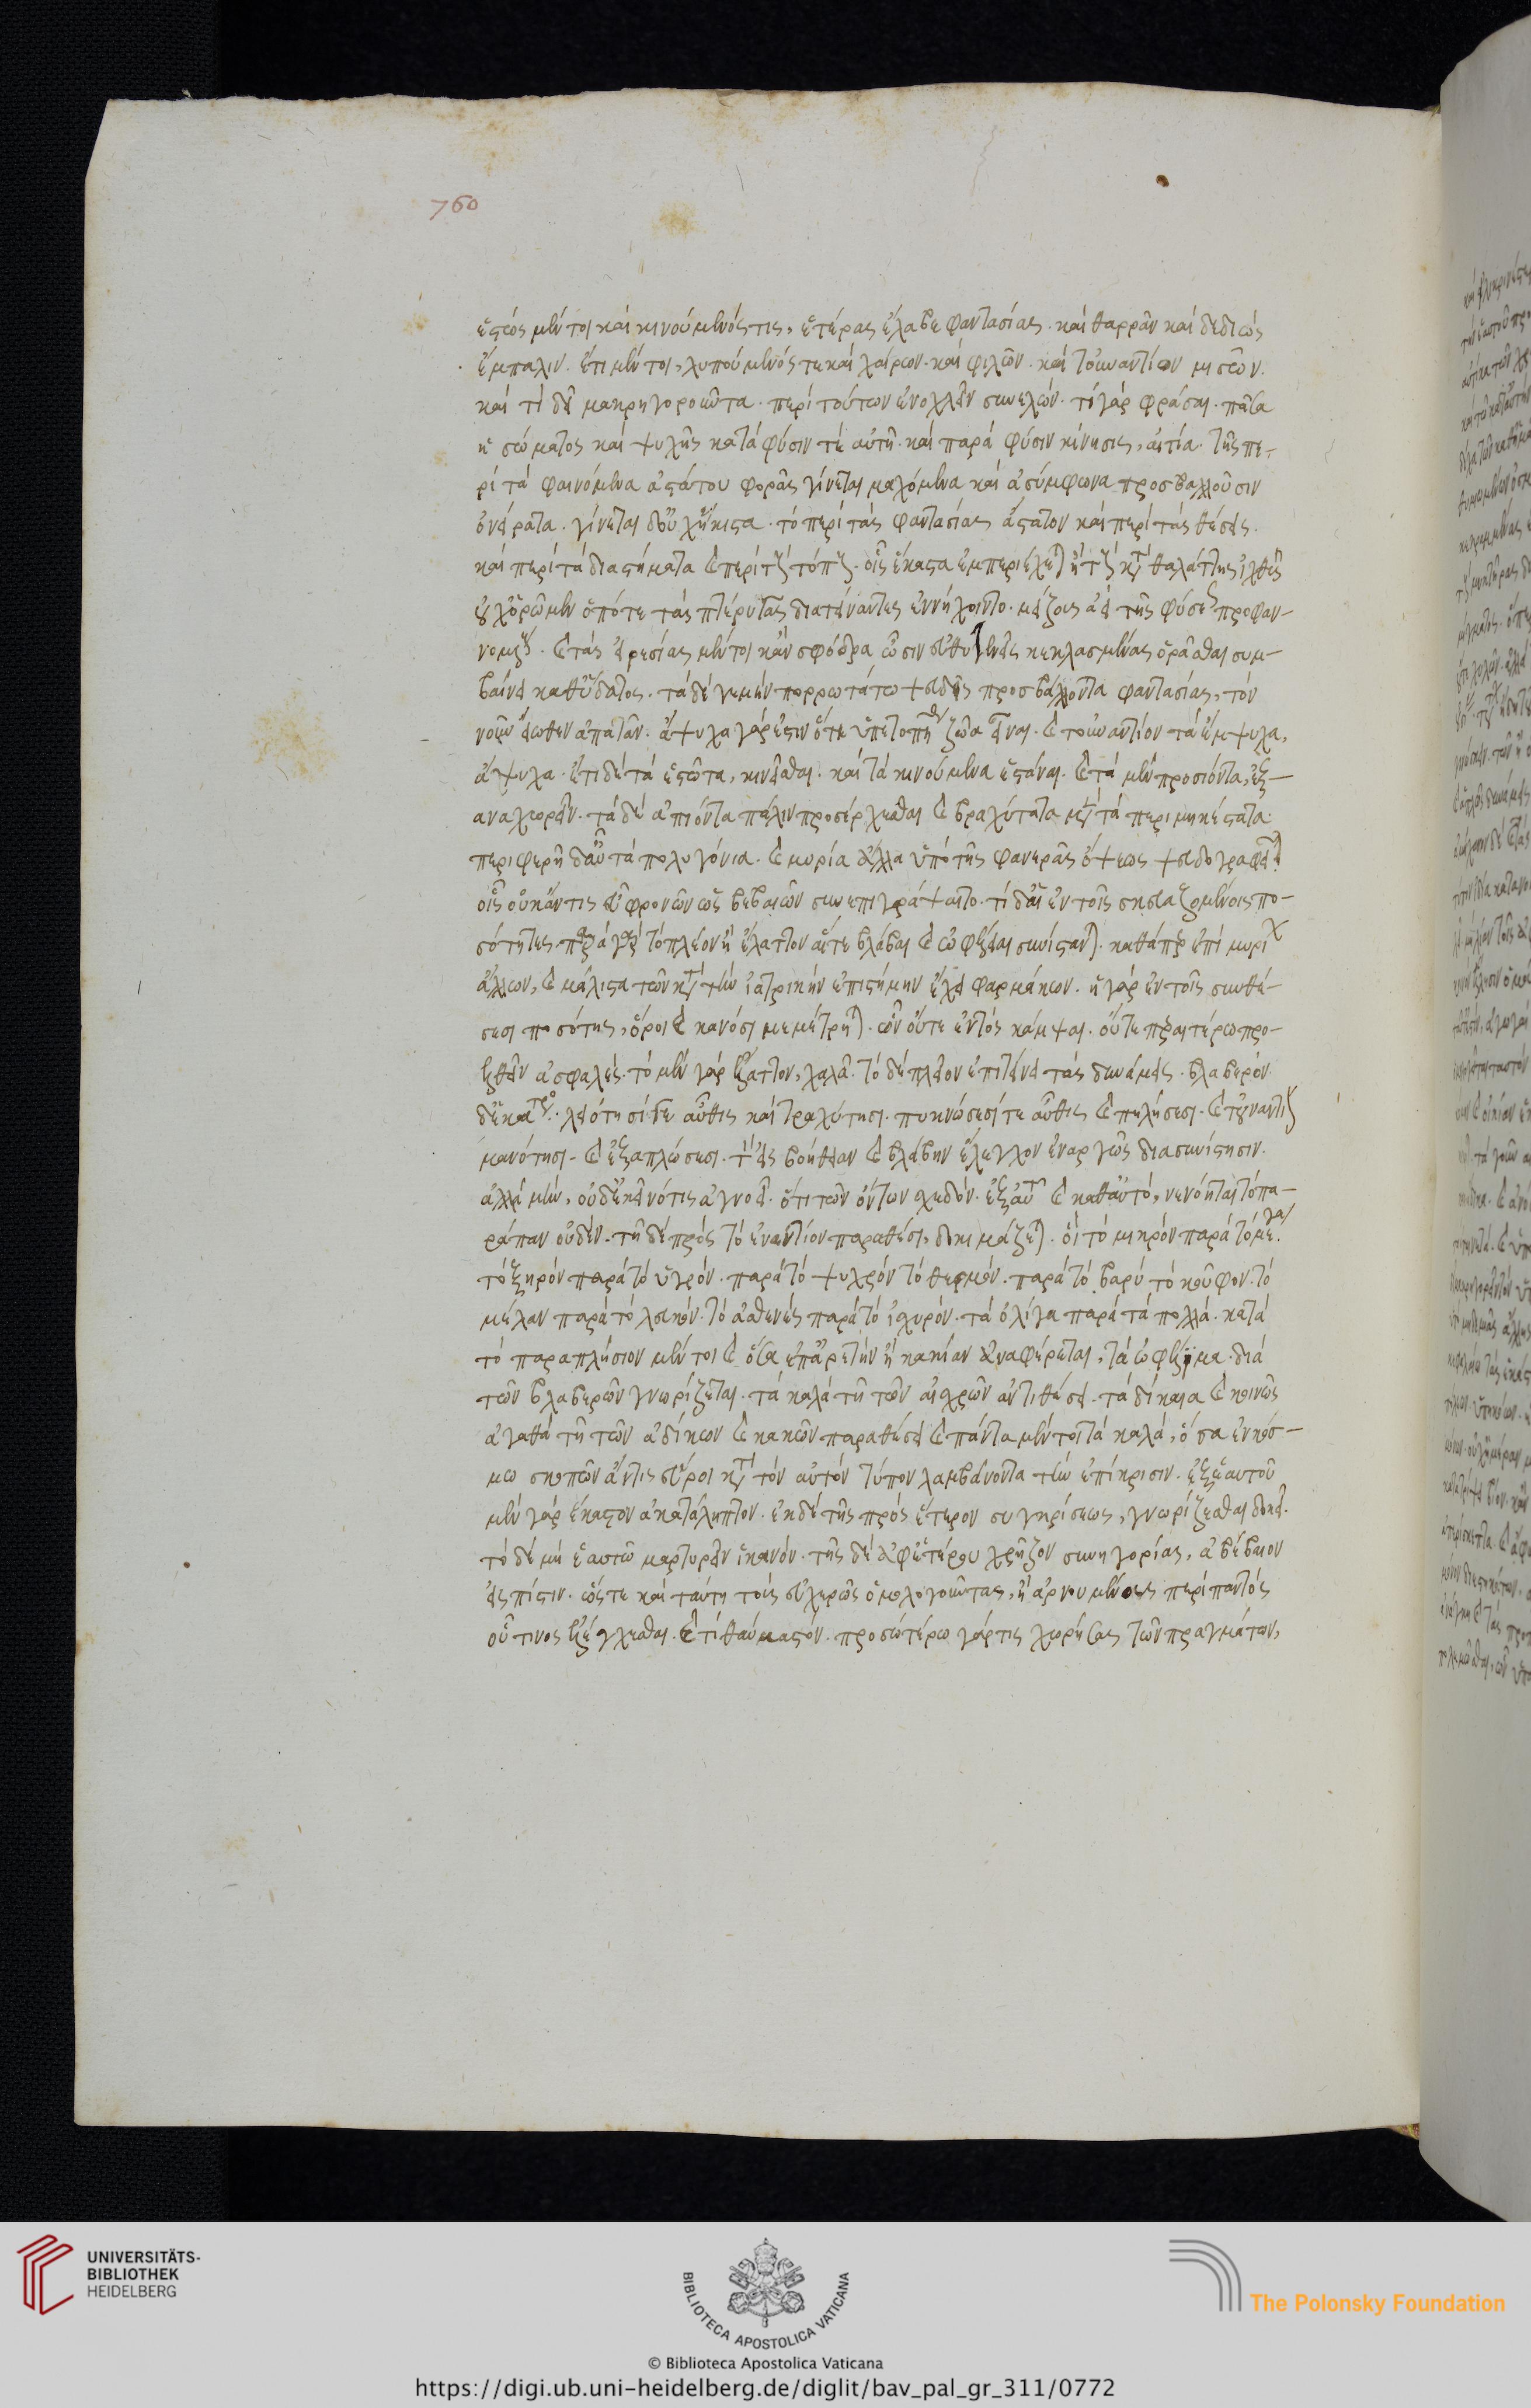 760
ἑστώς μέντοι καὶ κινούμενός τις, ἑτέρας ἔλαβε φαντασίας. καὶ θαρρῶν καὶ δεδιώς
ἔμπαλιν. ἔτι μέντοι, λυπούμενός τε καὶ χαίρων. καὶ φιλῶν. καὶ τοὐναντίον μισῶν.
καὶ τί δεῖ μακρηγοροῦντα. περὶ τούτων ἐνοχλεῖν συνελών. τὸ γὰρ φράσαι. πᾶσα
ἡ σώματος καὶ ψυχῆς κατὰ φύσιν τὲ αὐτῆ. καὶ παρὰ φύσιν κίνησις, αἰτία. τῆς πε-
ρὶ τὰ φαινόμενα ἀστάτου φορᾶς γίνεται μαχόμενα καὶ ἀσύμφωνα προσβαλλοῦσιν
ὀνείρατα. γίνεται δ οὐχ ἥκιστα. τὸ περὶ τὰς φαντασίας ἄστατον καὶ περὶ τὰς θέσεις.
καὶ περὶ τὰ διαστήματα καὶ περὶ τοὺς τόπους. οἷς ἕκαστα ἐμπεριέχεται ἢ τοὺς κατὰ θαλάττης ἰχθῦς
οὐχ ὁρῶμεν ὁπότε τὰς πτέρυγας διατείναντες ἐννήχοιντο. μείζους ἀεὶ τῆς φύσεως προφαν-
νομένους. καὶ τὰς εἰρεσίας μέντοι κἂν σφόδρα ὦσιν εὐθυτενεῖς κεκλασμένας ὁρᾶσθαι συμ-
βαίνει καθ ὕδατος. τὰ δέ γε μὴν πορρωτάτω ψευδεῖς προσβάλλοντα φαντασίας, τὸν
νοῦν εἴωθεν ἀπατᾶν. ἄψυχα γάρ ἐστιν ὅτε ὑπετοπήθη ζῶα εἶναι. καὶ τοὐναντίον τὰ ἔμψυχα,
ἄψυχα. ἔτι δὲ τὰ ἑστῶτα, κινεῖσθαι. καὶ τὰ κινούμενα ἑστάναι. καὶ τὰ μὲν προσιόντα, ἐξ-
αναχωρεῖν. τὰ δὲ ἀπιόντα πάλιν προσέρχεσθαι καὶ βραχύτατα μὲν τὰ περιμηκέστατα
περιφερῆ δ αὖ τὰ πολυγώνια. καὶ μυρία ἄλλα ὑπὸ τῆς φανερᾶς ὄψεως ψευδογραφεῖται
οἷς οὐκ ἄν τις εὖ φρονῶν ὡς βεβαιῶν συνεπιγράψαιτο. τί δαὶ ἐν τοῖς σκευαζομένοις πο-
σότητες. παρὰ γὰρ τὸ πλέον ἢ ἔλαττον αἵ τε βλάβαι καὶ ὠφέλειαι συνίστανται. καθάπερ ἐπὶ μυρί
ἄλλων, καὶ μάλιστα τῶν κατὰ τὴν ἰατρικὴν ἐπιστήμην ἔχει φαρμάκων. ἡ γὰρ ἐν τοῖς συνθέ-
σεσι ποσότης, ὅροις καὶ κανόσι μεμέτρηται. ὧν οὔτε ἐντὸς κάμψαι. οὔτε περαιτέρω προ-
ελθεῖν ἀσφαλές. τὸ μὲν γὰρ ἔλαττον, χαλᾶ. τὸ δὲ πλεῖον ἐπιτείνει τὰς δυνάμεις. βλαβερὸν
δ ἑκάτερον. λειότησί τε αὖθις καὶ τραχύτησι. πυκνώσεσί τε αὖθις καὶ πιλήσεσι. καὶ τοὐναντίον
μανότησι. καὶ ἐξαπλώσεσι. τὸν εἰς βοήθειαν καὶ βλάβην ἔλεγχον ἐναργῶς διασυνίστησιν.
ἀλλὰ μὴν, οὐδ ἐκεῖνό τις ἀγνοεῖ. ὅτι τῶν ὄντων σχεδόν. ἐξ αὑτοῦ καὶ καθ αὑτό, νενόηται τὸ πα-
ράπαν οὐδέν. τῆ δὲ πρὸς τὸ ἐναντίον παραθέσει, δοκιμάζεται. οἷ τὸ μικρὸν παρὰ τὸ μέγα.
τὸ ξηρὸν παρὰ τὸ ὑγρόν. παρὰ τὸ ψυχρὸν τὸ θερμόν. παρὰ τὸ βαρὺ τὸ κοῦφον. τὸ
μέλαν παρὰ τὸ λευκόν. τὸ ἀσθενὲς παρὰ τὸ ἰσχυρόν. τὰ ὀλίγα παρὰ τὰ πολλά. κατὰ
τὸ παραπλήσιον μέντοι καὶ ὅσα ἐπ ἀρετὴν ἢ κακίαν ἀναφέρεται, τὰ ὠφέλιμα. διὰ
τῶν βλαβερῶν γνωρίζεται. τὰ καλὰ τῆ τῶν αἰσχρῶν ἀντιθέσει. τὰ δίκαια καὶ κοινῶς
ἀγαθὰ τῆ τῶν ἀδίκων καὶ κακῶν παραθέσει καὶ πάντα μέντοι τὰ καλά, ὅσα ἐν κόσ-
μω σκοπῶν ἄν τις εὕροι κατὰ τὸν αὐτὸν τύπον λαμβάνοντα τὴν ἐπίκρισιν. ἐξ ἑαυτοῦ
μὲν γὰρ ἕκαστον ἀκατάληπτον. ἐκ δὲ τῆς πρὸς ἕτερον συγκρίσεως, γνωρίζεσθαι δοκεῖ.
τὸ δὲ μὴ ἑαυτῶ μαρτυρεῖν ἱκανόν. τῆς δὲ ἀφ ἑτέρου χρῆζον συνηγορίας, ἀβέβαιον
εἰς πίστιν. ὥστε καὶ ταύτη τοὺς εὐχερῶς ὁμολογοῦντας, ἢ ἀρνουμένους περὶ παντὸς
οὗτινος ἐλέγχεσθαι. καὶ τί θαυμαστόν. προσωτέρω γάρ τις χωρήσας τῶν πραγμάτων,
UNIVERSITÄTS-
BIBLIOTHEK
HEIDELBERG
BIBLIOTECA APOSTOLICA VATICANA
The Polonsky Foundation
© Biblioteca Apostolica Vaticana
https://digi.ub.uni-heidelberg.de/diglit/bav_pal_gr_311/0772